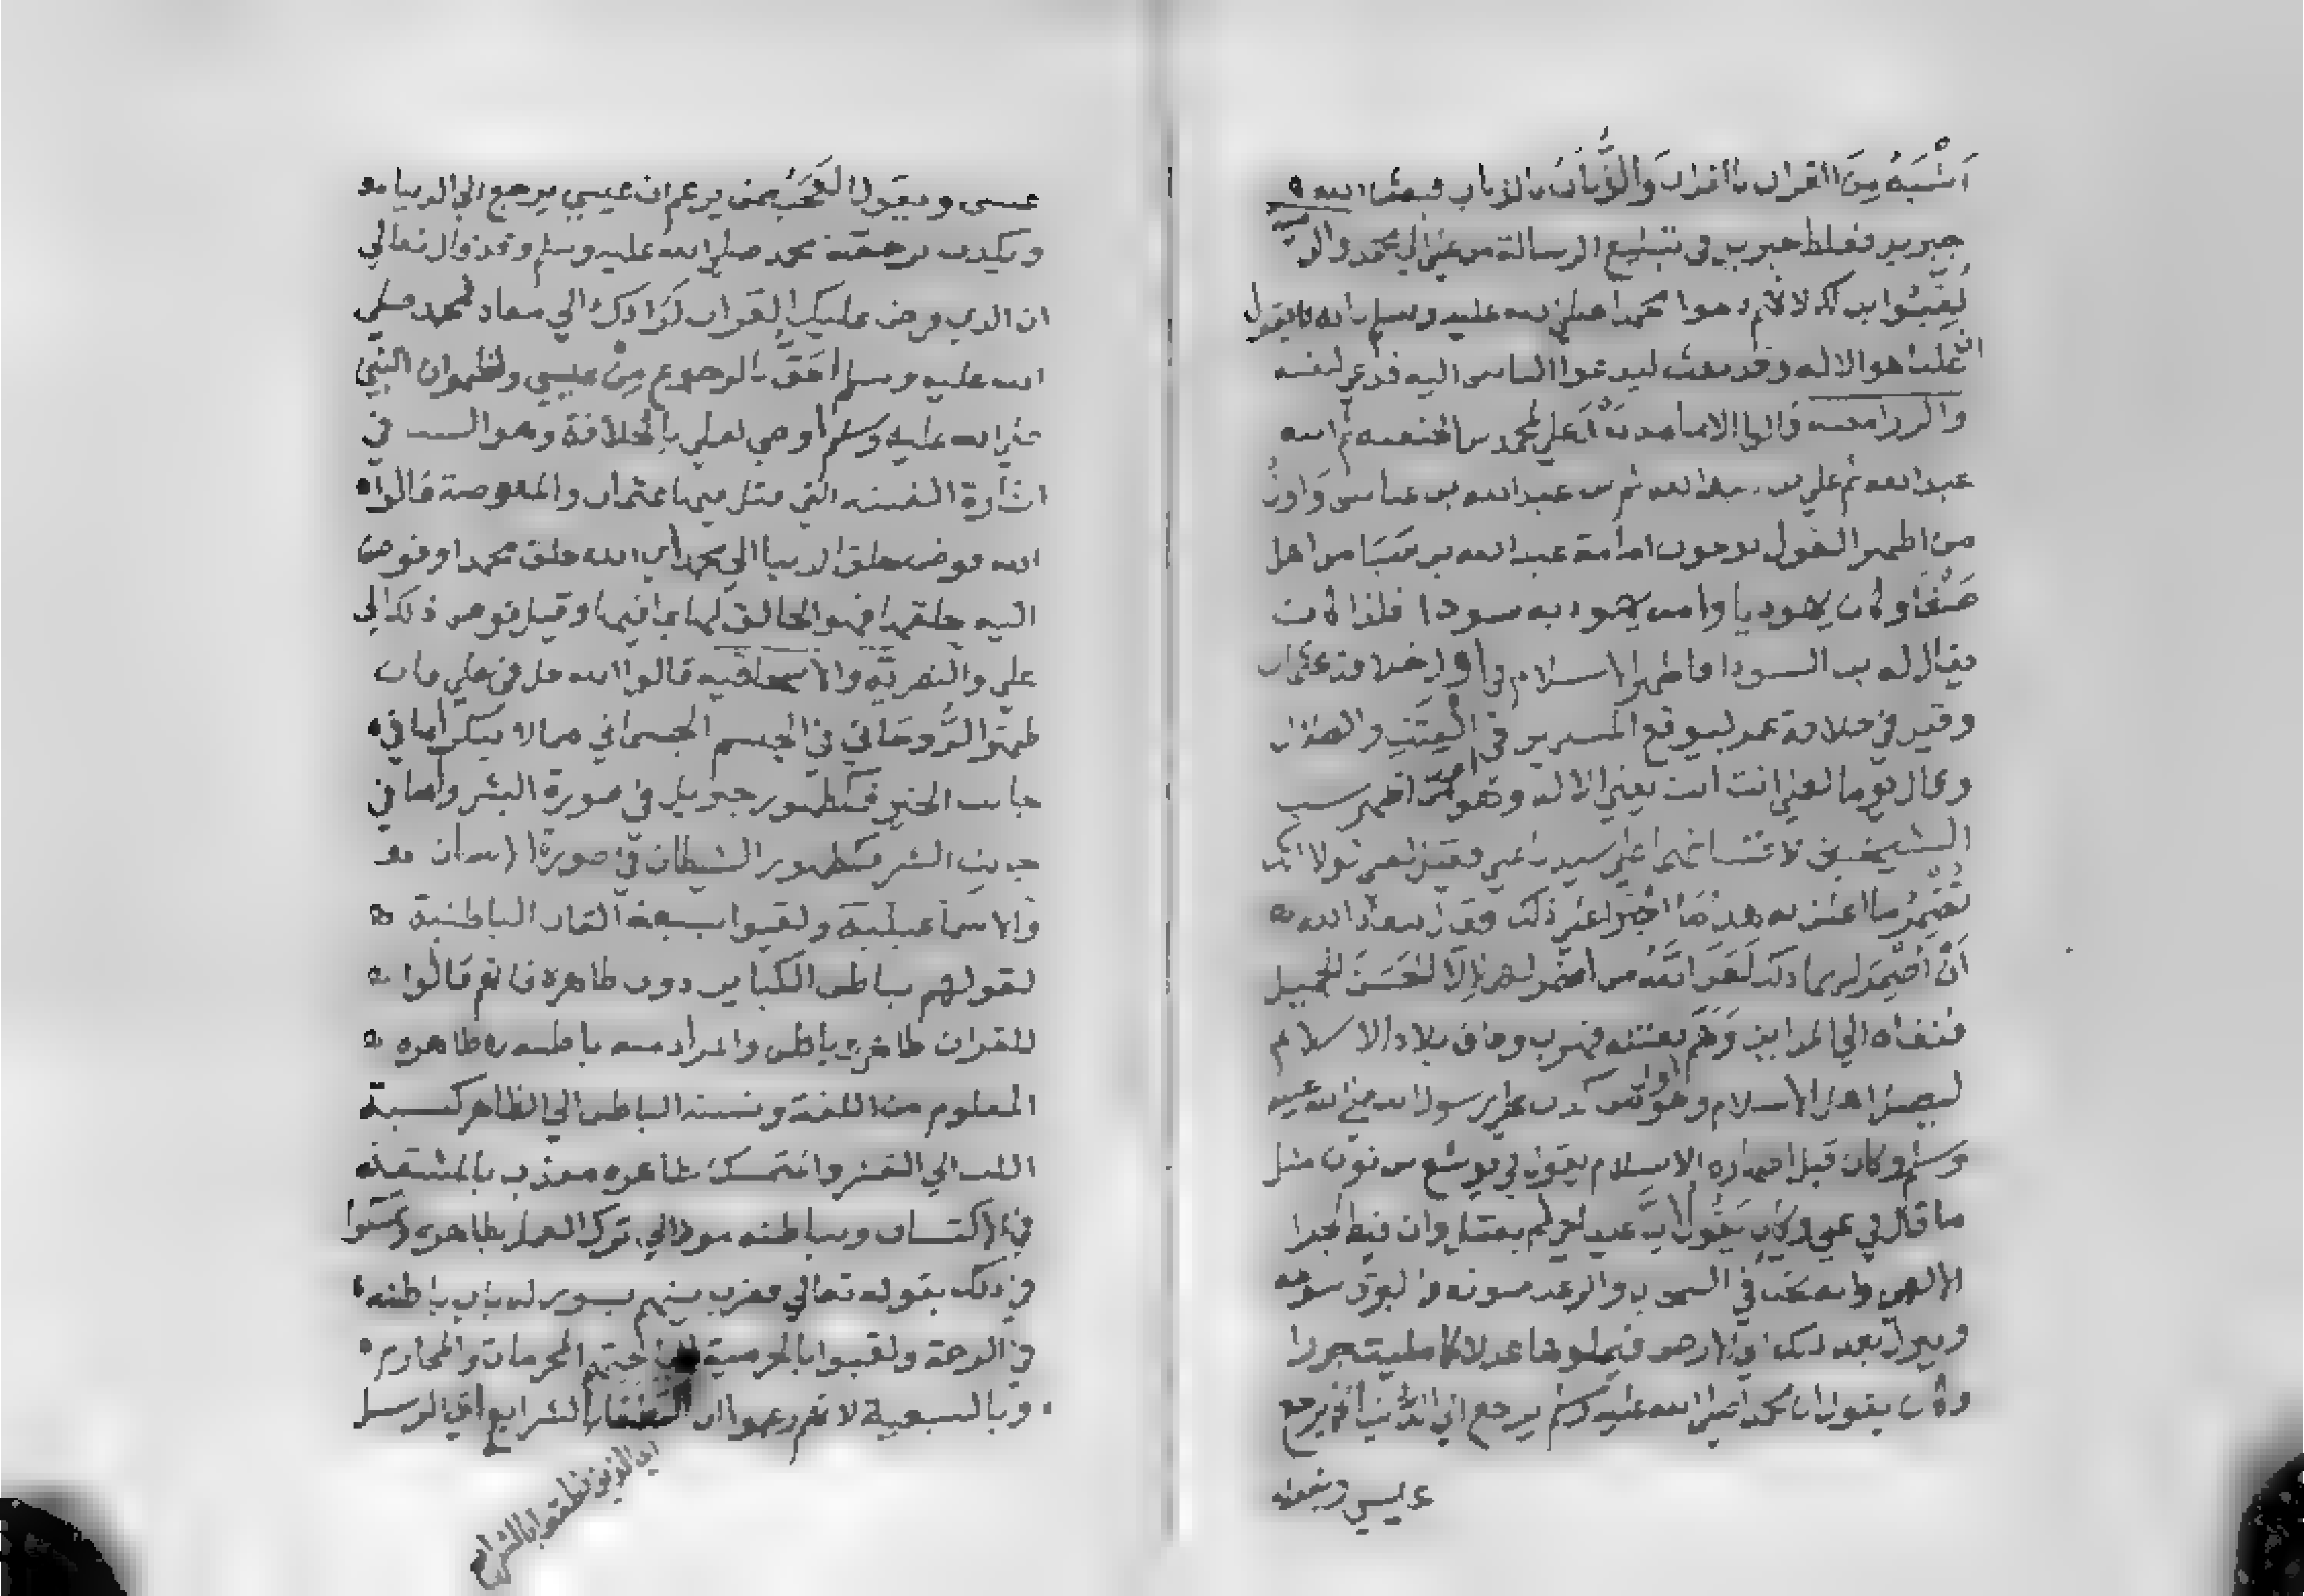 اَشْبَهُ مِنَ الغراب بالغراب وَالذُّبَابُ بالذباب فبعث الله
جبريل فغلط جبريل في تبليغ الرسالة من علي الي محمد والذمية
لُقِّبُوا بذلك لانهم ذموا محمدا صلي الله عليه وسلم بانه يقول
ان علياً هو الاله وقد بعثه ليدعوا الناس اليه فدعي لنفسه
والرزامية قالوا الامامة بَعْدَ علي لمحمد بن الحنفية ثم ابنه
عبد الله ثم علي بن عبد الله بن عباس وَاولُ
من اظهر القول بوجوب امامة عبد الله بن سَبَا من اهل
صَنْعَا وكان يهوديا وامه يهودية سودا فلذا كان
يقال له بن السودا فاظهر الاسلام في اول خلافة عثمان
وقيل في خلافة عمر ليوقع المسلمين في الفتن والضلال
وقال يوما لعلي انت انت يعني الاله وهو اول من اظهر سب
الشيخين
تُضْمِرُ ما اعلن به هذا مَا اجْتَرا علي ذلك فقال معاذ الله
اَنْ اُضْمِرَ لهما ذلك لَعَنَ اللهُ من اضمر لهما اِلَّا الحَسَنَ الجَميل
فنفاه الي المداين وَهَمَّ بقتله فهرب وطاف بلاد الاسلام
ليضل اهل الاسلام وهو اول من كذب علي رسول الله صلي الله عليه
وسلم وكان قبل اظهاره الاسلام يقول في يوشع بن نون مثل
ما قال في علي وكان يَقُولُ اِنَّ علياً حي لم يقتل وان فيه الجزا
الالهي وانه يجئ في السحاب والرعد صوته والبرق سوطه
وينزل بعد ذلك الي الارض فيملوها عدلا كما مليت جورا
وكان يقول ان محمدا صلي الله عليه وسلم يرجع الي الدُّنيا كما يرجع
عيسي ويقول
عيسى ويقول العَجَبُ ممن يزعم ان عيسي يرجع الي الدنيا
ويكذب برجعة محمد صلي الله عليه وسلم وقد قال تعالي
ان الذي فرض عليك القران لَرَادك الي معاد فمحمد صلي
الله عليه وسلم اَحَقُّ بالرجوع مِنْ عيسي واظهر ان النبي
صلي الله عليه وسلم اوصي لعلي بالخلافة وهو السبب في
اثارة الفتنة التي قتل فيها عثمان والمفوضة قالوا
الله فوض خلق الدنيا الي محمد اي الله خلق محمدا وفوض
اليه خلقها فهو الخالق لها بما فيها وقيل فوض ذلك الي
علي والنصريَّة والاسحاقية قالوا الله حل في علي فان
ظهور الرُّوحَاني في الجسم الجسماني مما لا ينكر اما في
جانب الخير فكظهور جبريل في صورة البشر واما في
جانب الشر فكظهور الشيطان في صورة الانسان
والاسماعيلية ولقبوا بسبعة القاب الباطنية
لقولهم بباطن الكتاب دون ظاهره فانهم قالوا
للقران ظاهر وباطن والمراد منه باطنه لا ظاهره
المعلوم من اللغة ونسبة الباطن الي الظاهر كنسبة
اللب الي القشر والمتمسك بظاهره معذب بالمشقة
في الاكتساب وباطنه مودالي ترك العمل بظاهره وتمسكوا
في ذلك بقوله تعالي فضرب بينهم بسور له باب باطنه
فيه الرحمة ولقبوا بالحرمية لاباحتهم المحرمات والمحارم
وبالسبعية لانهم زعموا ان النطقا بالشرايع اي الرسل
اي الذين نطقوا بالشرايع